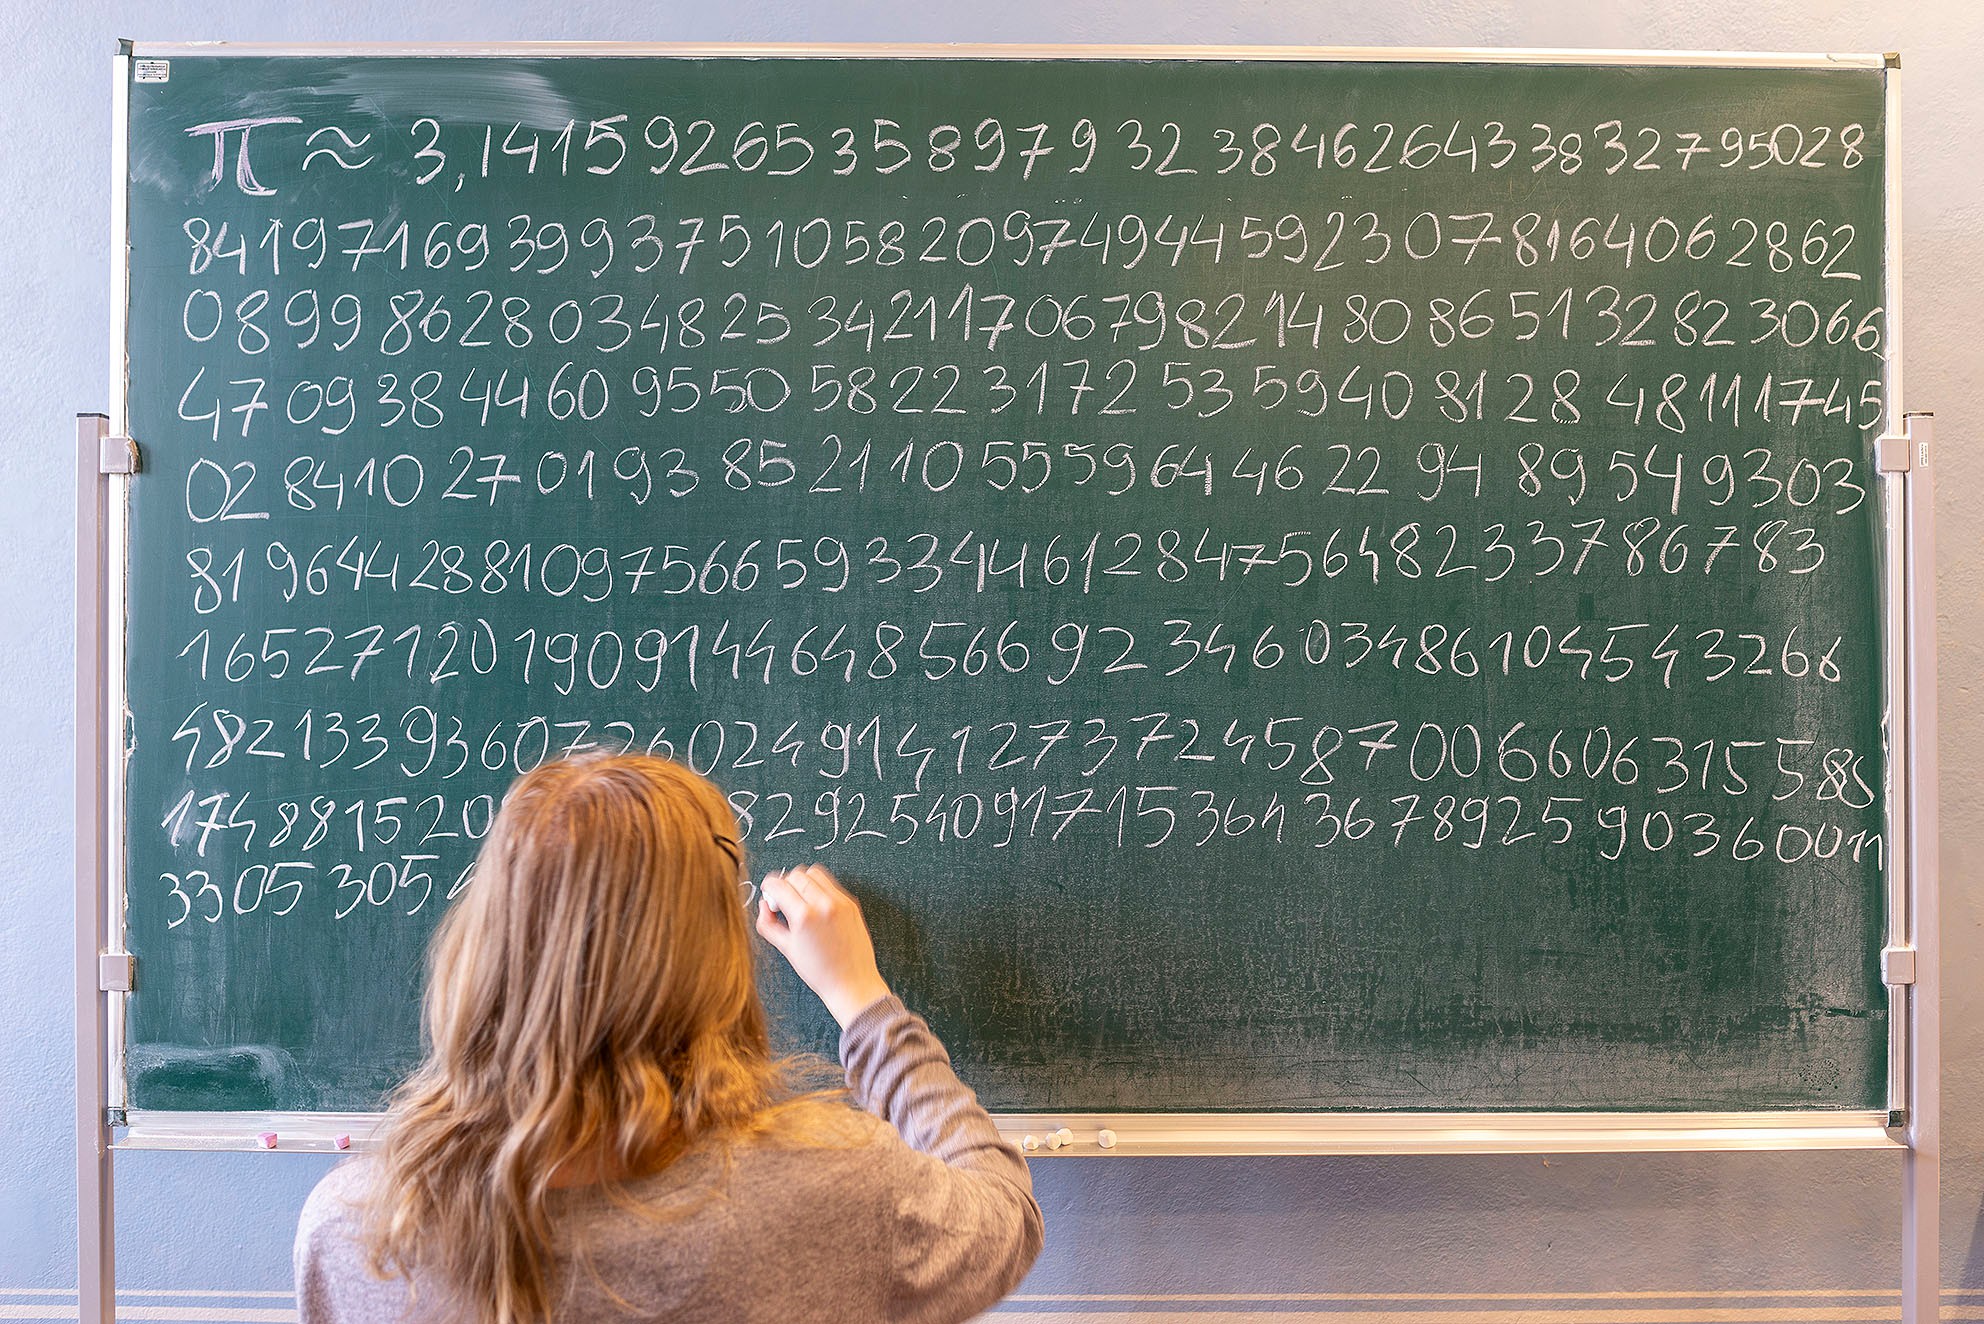 π ≈ 3,1415926535897932384626433832795028
841971693993751058209749445923078164062862
089986280348253421170679821480865132823066
4709384460955058223172535940812848111745
0284102701938521105559644622948954930​3
81964428810975665933446128475648233786783
1652712019091446485669234603486104543266
48213393607260249141273724587006606315588
174881520 829254091715364367892590360011
3305305